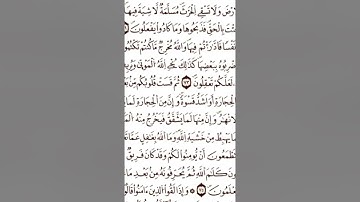 رْضَ وَلَا تَسْقِى ٱلْحَرْثَ مُسَلَّمَةٌ لَّا شِيَةَ فِيهَا
تَ بِٱلْحَقِّ فَذَبَحُوهَا وَمَا كَادُوا۟ يَفْعَلُونَ
نَفْسًا فَٱدَّٰرَْٰٔتُمْ فِيهَا وَٱللَّهُ مُخْرِجٌ مَّا كُنتُمْ تَكْتُمُو
ضْرِبُوهُ بِبَعْضِهَا كَذَٰلِكَ يُحْىِ ٱللَّهُ ٱلْمَوْتَىٰ وَيُرِي
لَعَلَّكُمْ تَعْقِلُونَ ٧٣ ثُمَّ قَسَتْ قُلُوبُكُم مِّنۢ بَعْ
ٱلْحِجَارَةِ أَوْ أَشَدُّ قَسْوَةً وَإِنَّ مِنَ ٱلْحِجَارَةِ لَمَ
نْهَٰرُ وَإِنَّ مِنْهَا لَمَا يَشَّقَّقُ فَيَخْرُجُ مِنْهُ ٱلْمَ
مَا يَهْبِطُ مِنْ خَشْيَةِ ٱللَّهِ وَمَا ٱللَّهُ بِغَٰفِلٍ عَمَّا تَعْ
تَطْمَعُونَ أَن يُؤْمِنُوا۟ لَكُمْ وَقَدْ كَانَ فَرِيقٌ
ونَ كَلَٰمَ ٱللَّهِ ثُمَّ يُحَرِّفُونَهُۥ مِنۢ بَعْدِ مَا
لَمُونَ ٧٥ وَإِذَا لَقُوا۟ ٱلَّذِينَ ءَامَنُوا۟ قَالُو